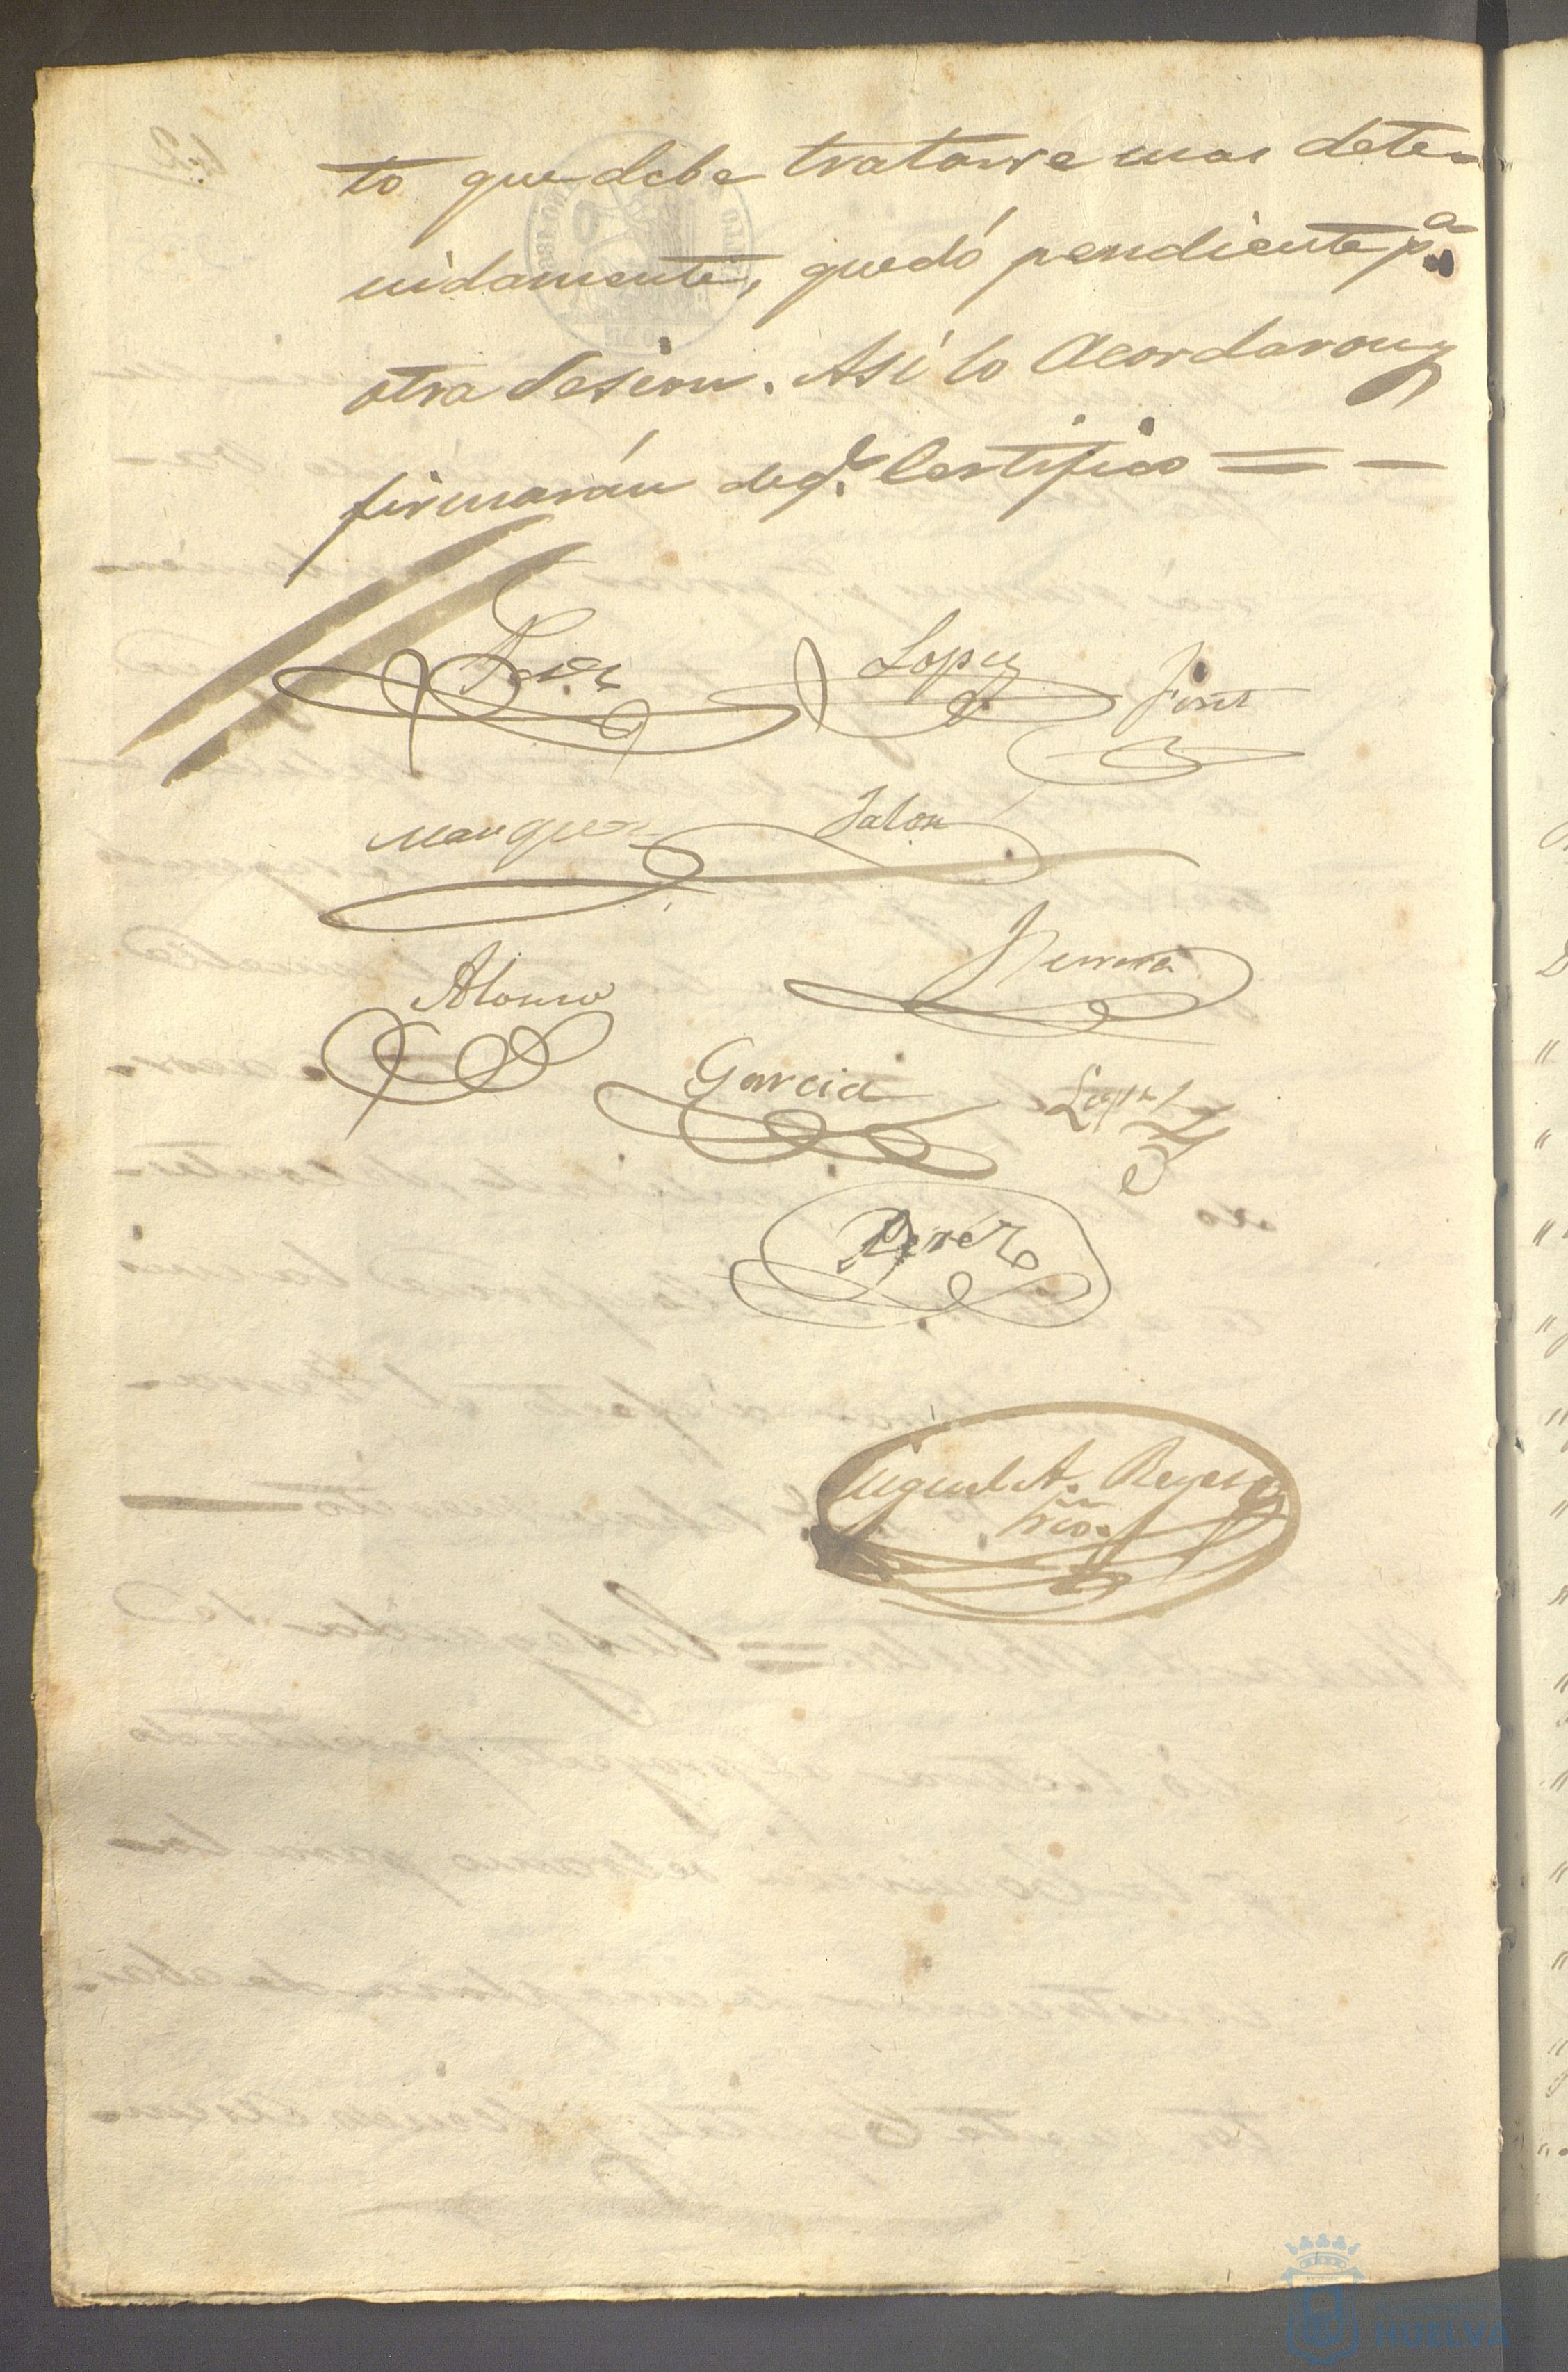 to que debe tratarse mas dete-
nidamente, quedó pendiente p.ª
otra sesion. Así lo acordaron y
firmarán de q.e Certifico = -
Lopez Font
Marquez Jalon
Alonso Herrera
Garcia Lopez
Perez
Miguel A. Reyes
Srio.
HUELVA